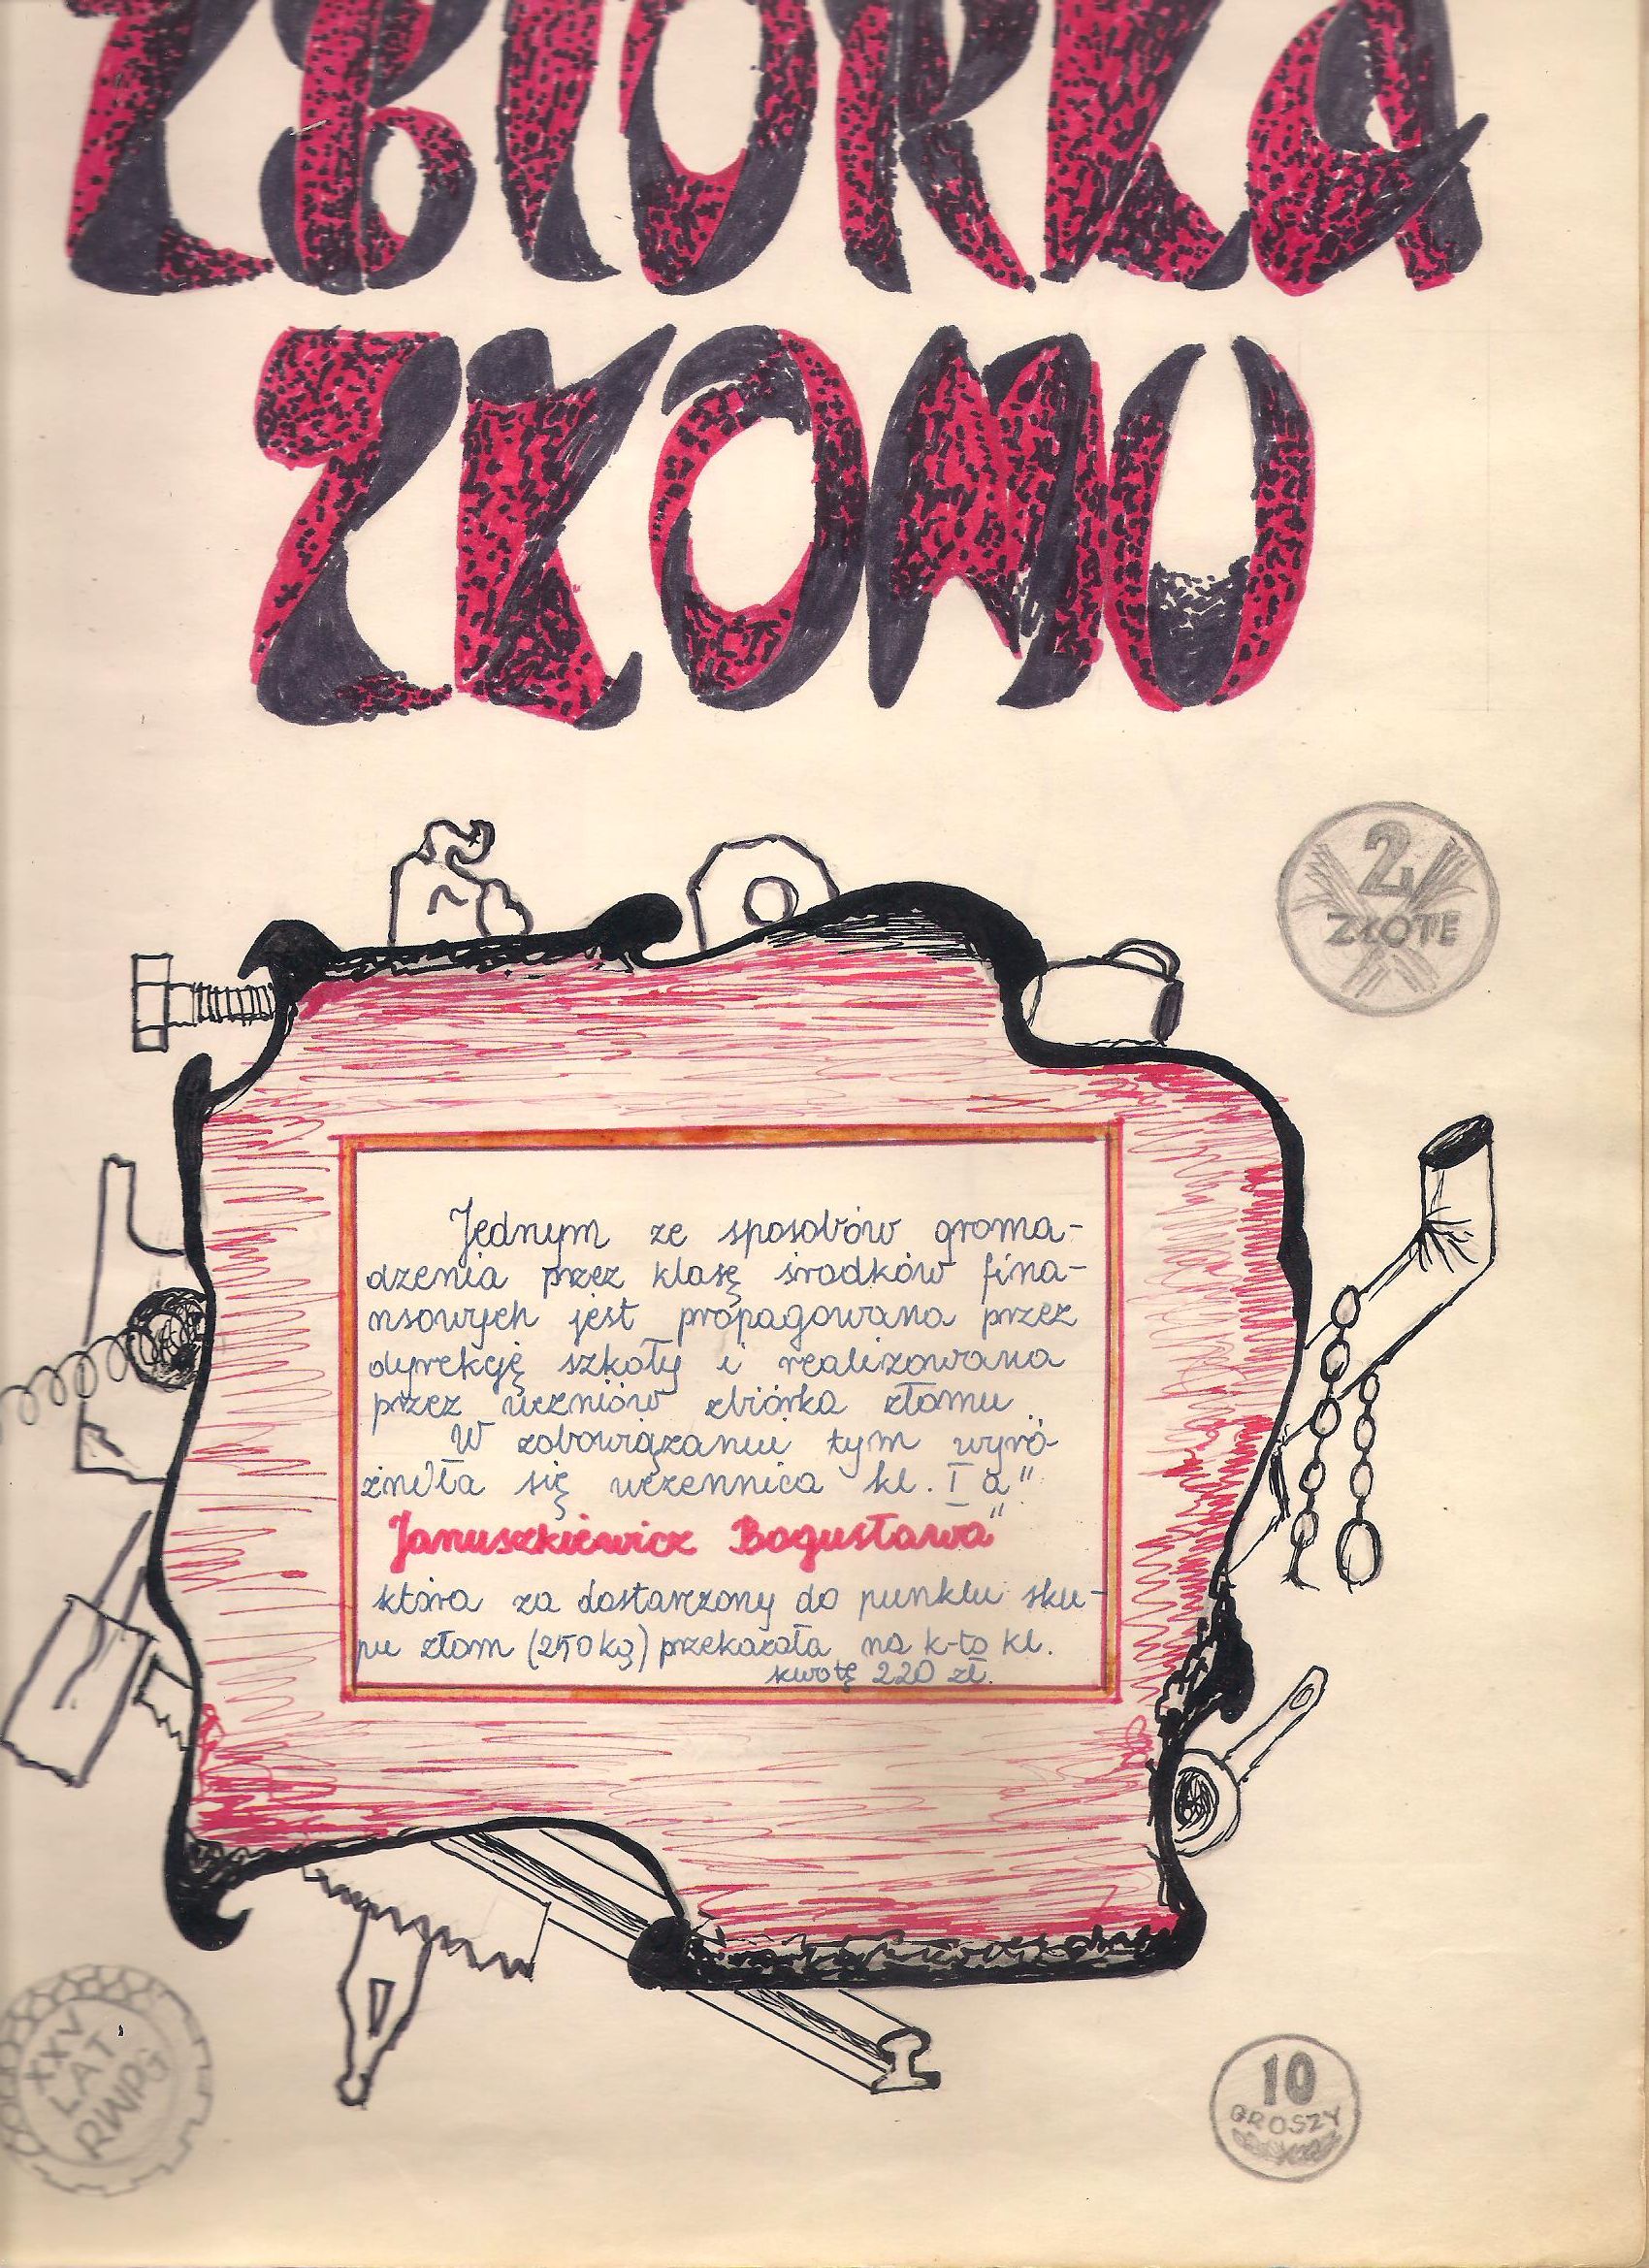 ZBIÓRKA
ZŁOMU
2
ZŁOTE
Jednym ze sposobów groma-
dzenia przez klasę środków fina-
nsowych jest propagowana przez
dyrekcję szkoły i realizowana
przez uczniów zbiórka złomu
W zobowiązaniu tym wyró-
żniła się uczennica kl. I „a"
Januszkiewicz Bogusława
która za dostarczony do punktu sku-
pu złom (250kg) przekazała na k-to kl.
kwotę 220 zł.
XXV
LAT
RWPG
10
GROSZY